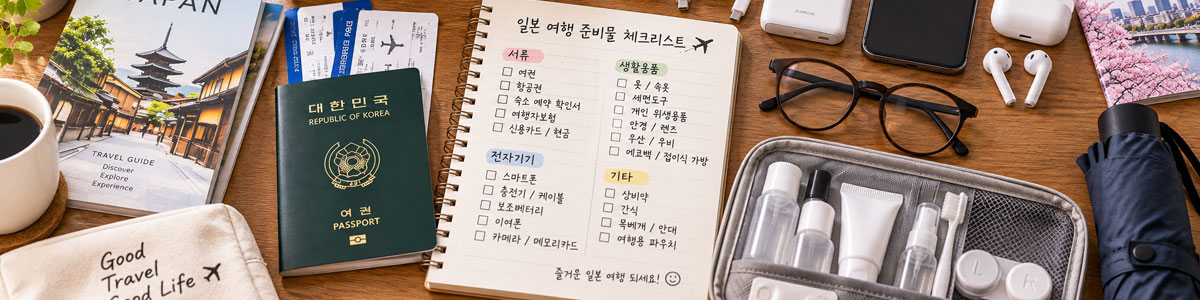 JAPAN
TRAVEL GUIDE
Discover
Explore
Experience
대한민국
REPUBLIC OF KOREA
여권
PASSPORT
Good
Travel
Good Life
일본 여행 준비물 체크리스트
서류
여권
항공권
숙소 예약 확인서
여행자보험
신용카드 / 현금
전자기기
스마트폰
충전기 / 케이블
보조베터리
이여폰
카메라 / 메모리카드
생활용품
옷 / 속옷
세면도구
개인 위생용품
안경 / 렌즈
우산 / 우비
에코백 / 접이식 가방
기타
상비약
간식
목베개 / 안대
여행용 파우치
즐거운 일본 여행 되세요!
L
R